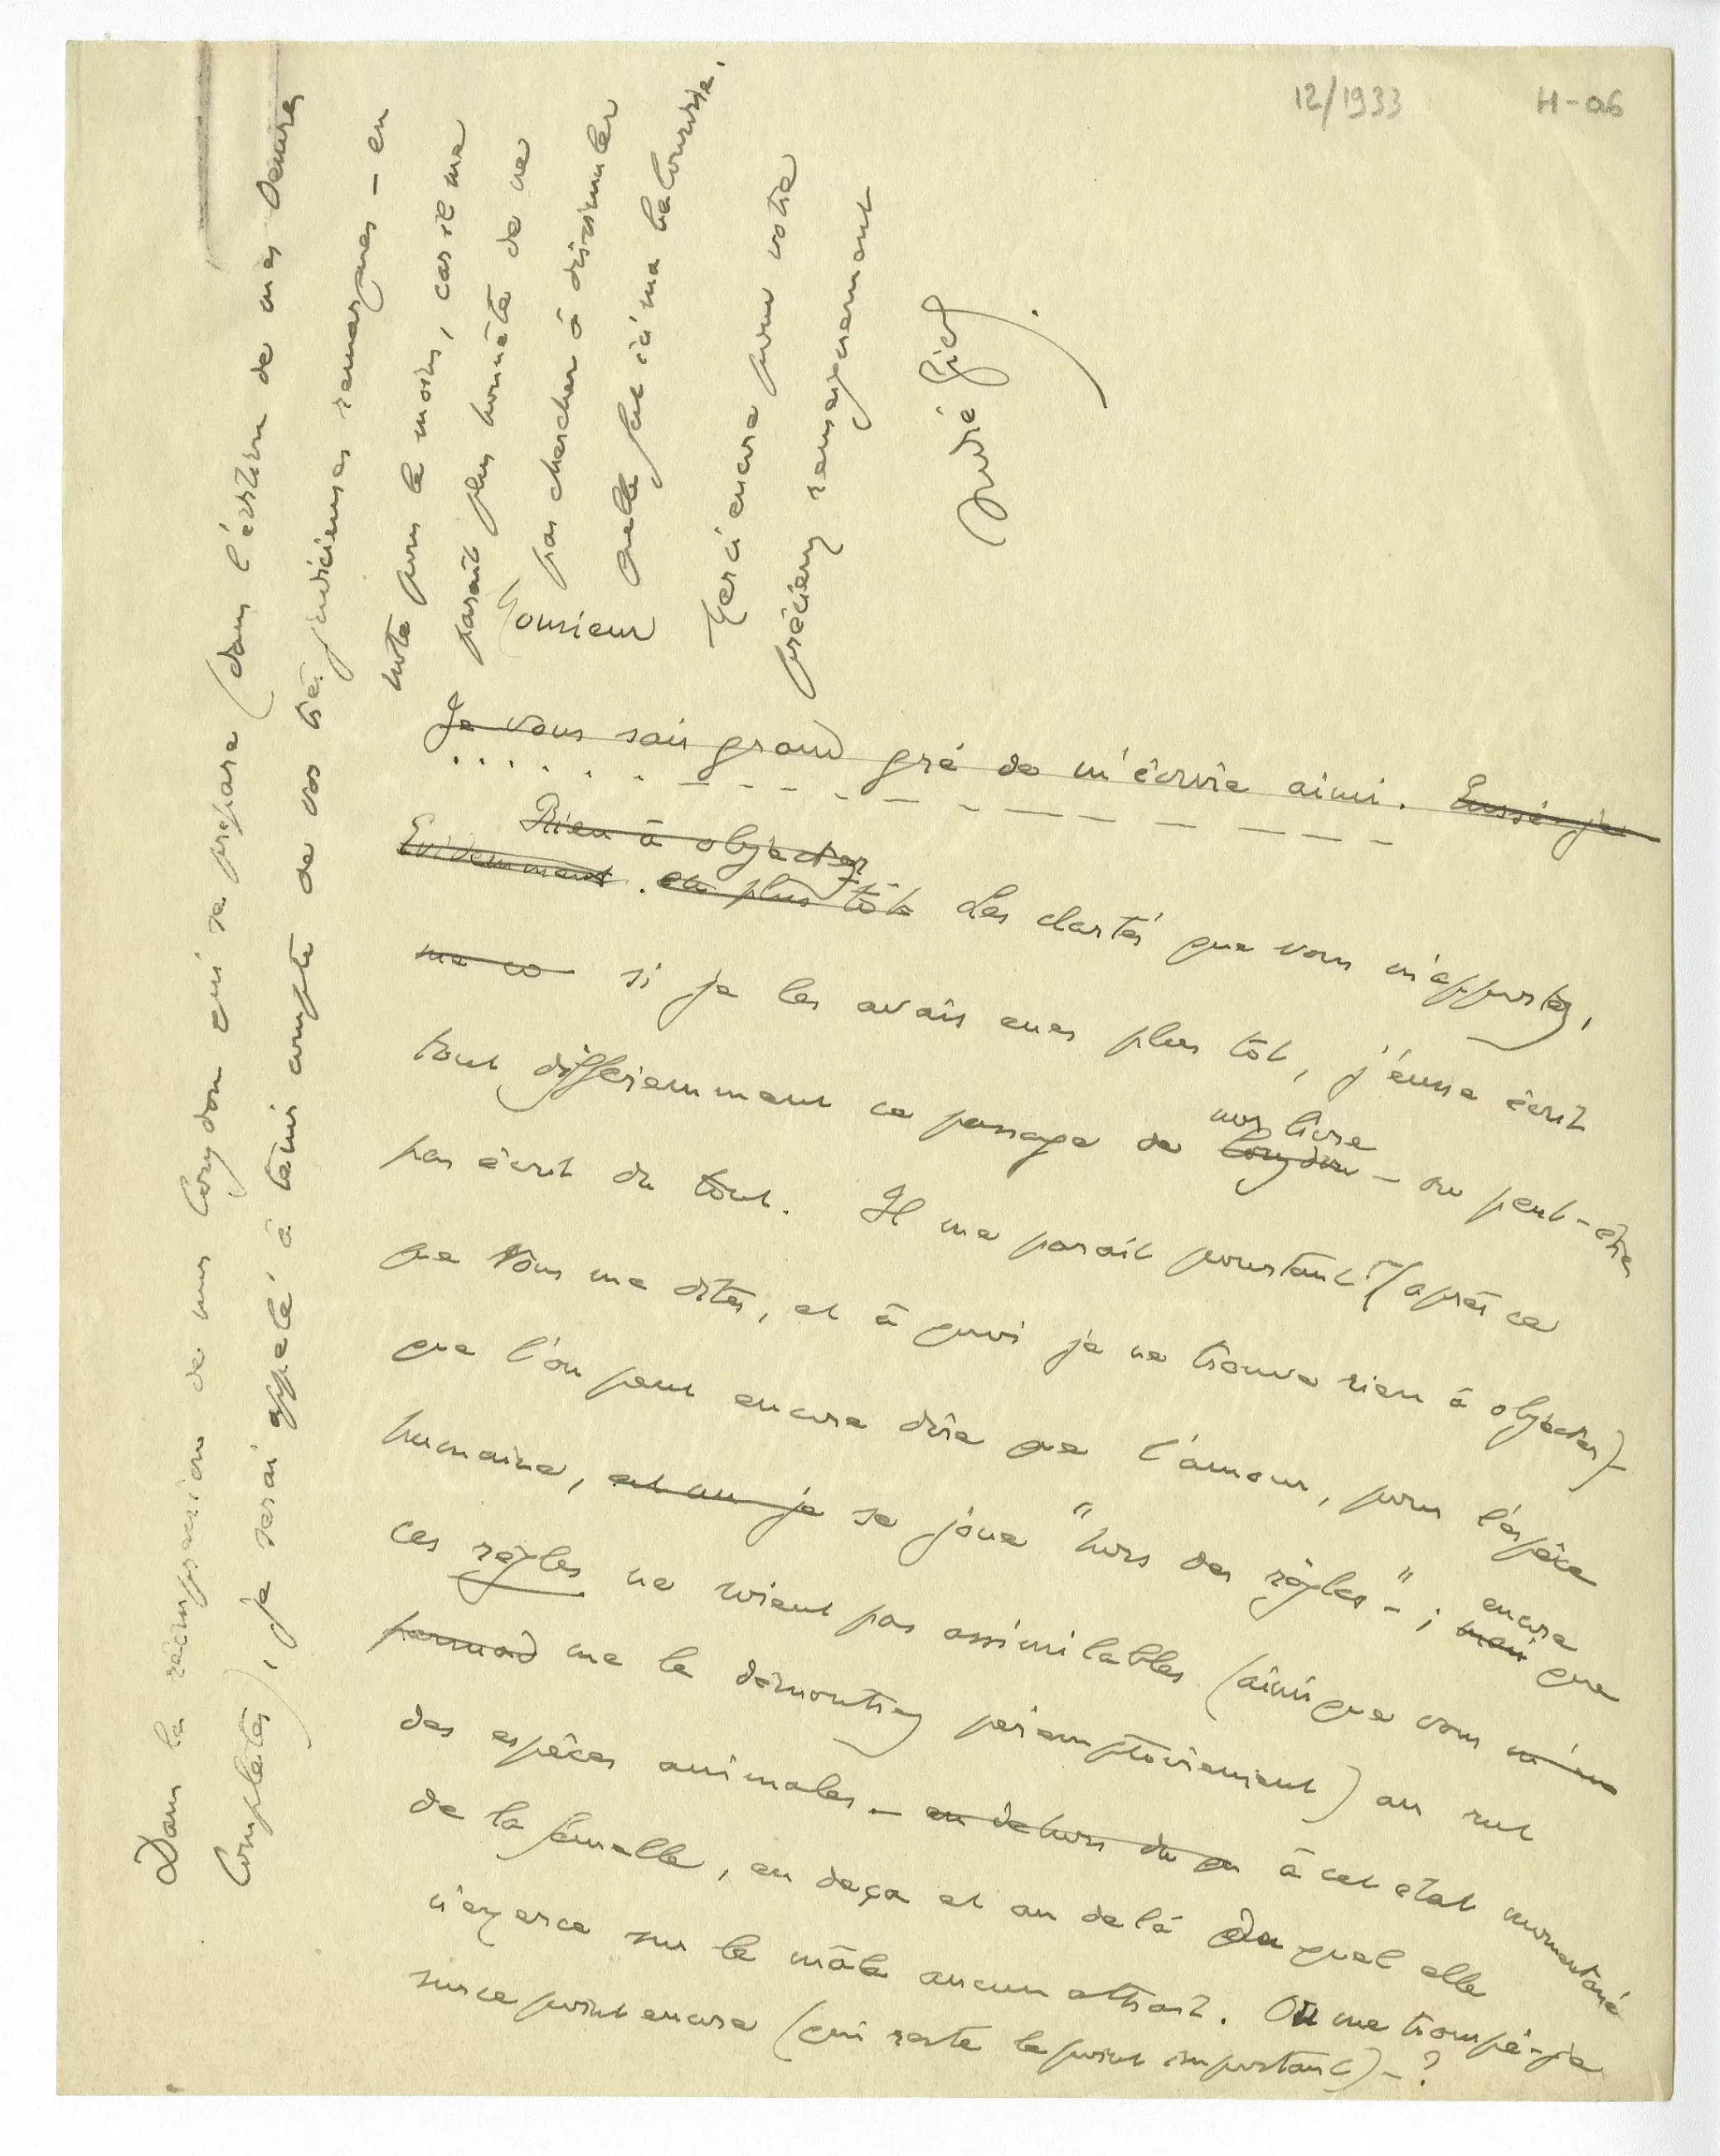 12/1933
H-06
Monsieur
Je vous sais grand gré de m'écrire ainsi. Eussé-je
Rien à objecter
Evidemment. plus tôt Les clartés que vous m'apportez,
me co si je les avais eues plus tôt, j'eusse écrit
tout différemment ce passage de Corydon mon livre - ou peut-être
pas écrit du tout. Il me paraît pourtant (après ce
que vous me dites, et à quoi je ne trouve rien à objecter)-
que l'on peut encore dire que l'amour, pour l'espèce
humaine, se joue "hors des règles" - ; mais encore que
ces règles ne soient pas assimilables (ainsi que vous m'en
me le démontrez péremptoirement) au rut
des espèces animales - en dehors du à cet état momentané
de la femelle, en deça et au delà duquel elle
n'exerce sur le mâle aucun attrait. Ou me trompé-je
sur ce point encore (qui reste le point important) - ?
Dans la réimpression de mon Corydon qui se prépare (dans l'édition de mes Oeuvres
Complètes), je serai appelé, à tenir compte de vos très judicieuses remarques - en
note pour le moins, car il me
paraît plus honnête de ne
pas chercher à dissimuler
quelle fut ici ma balourdise.
Merci encore pour votre
précieux renseignement
André Gide.